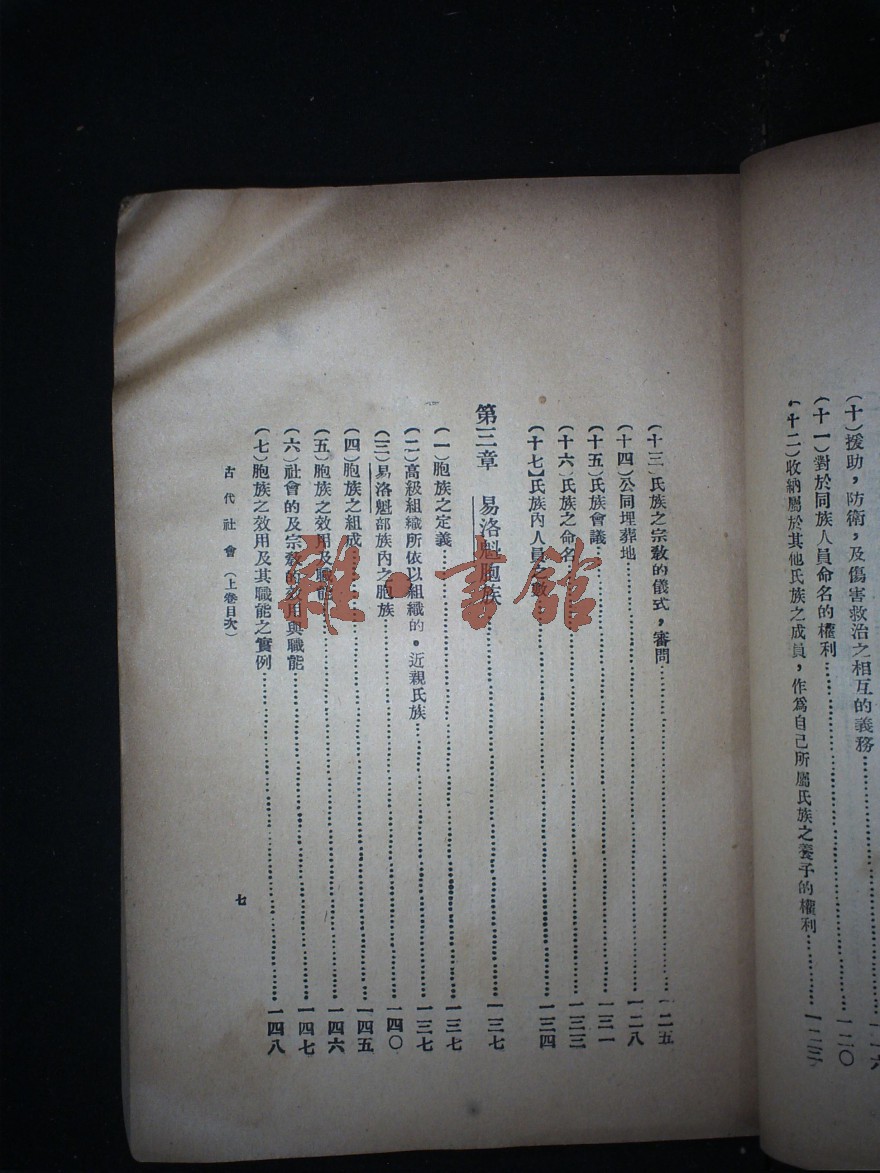 (十)援助,防衛,及傷害救治之相互的義務……
(十一)對於同族人員命名的權利……一二〇
(十二)收納屬於其他氏族之成員,作爲自己所屬氏族之養子的權利……
(十三)氏族之宗敎的儀式,審問……一二五
(十四)公同埋葬地……一二八
(十五)氏族會議……一三一
(十六)氏族之命名……一三三
(十七)氏族內人員之數……一三四
第三章 易洛魁胞族……一三七
(一)胞族之定義……一三七
(二)高級組織所依以組織的。近親氏族……一三七
(三)易洛魁部族內之胞族……一四〇
(四)胞族之組成……一四五
(五)胞族之效用及職能……一四六
(六)社會的及宗敎的效用與職能……一四七
(七)胞族之效用及其職能之實例……一四八
古代社會(上卷目次)
七
雜·書館